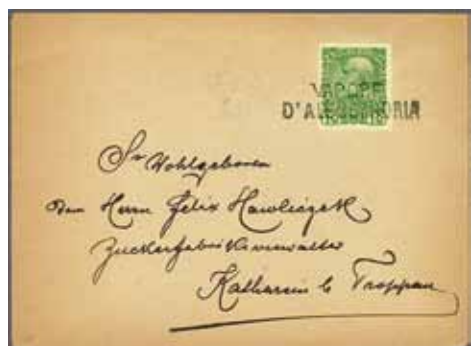 VAPORE
D'ALESSANDRIA
Sr Wohlgeboren
dem Herrn Felix Hawliczek
Zuckerfabriksverwalter
Katharein b Troppau